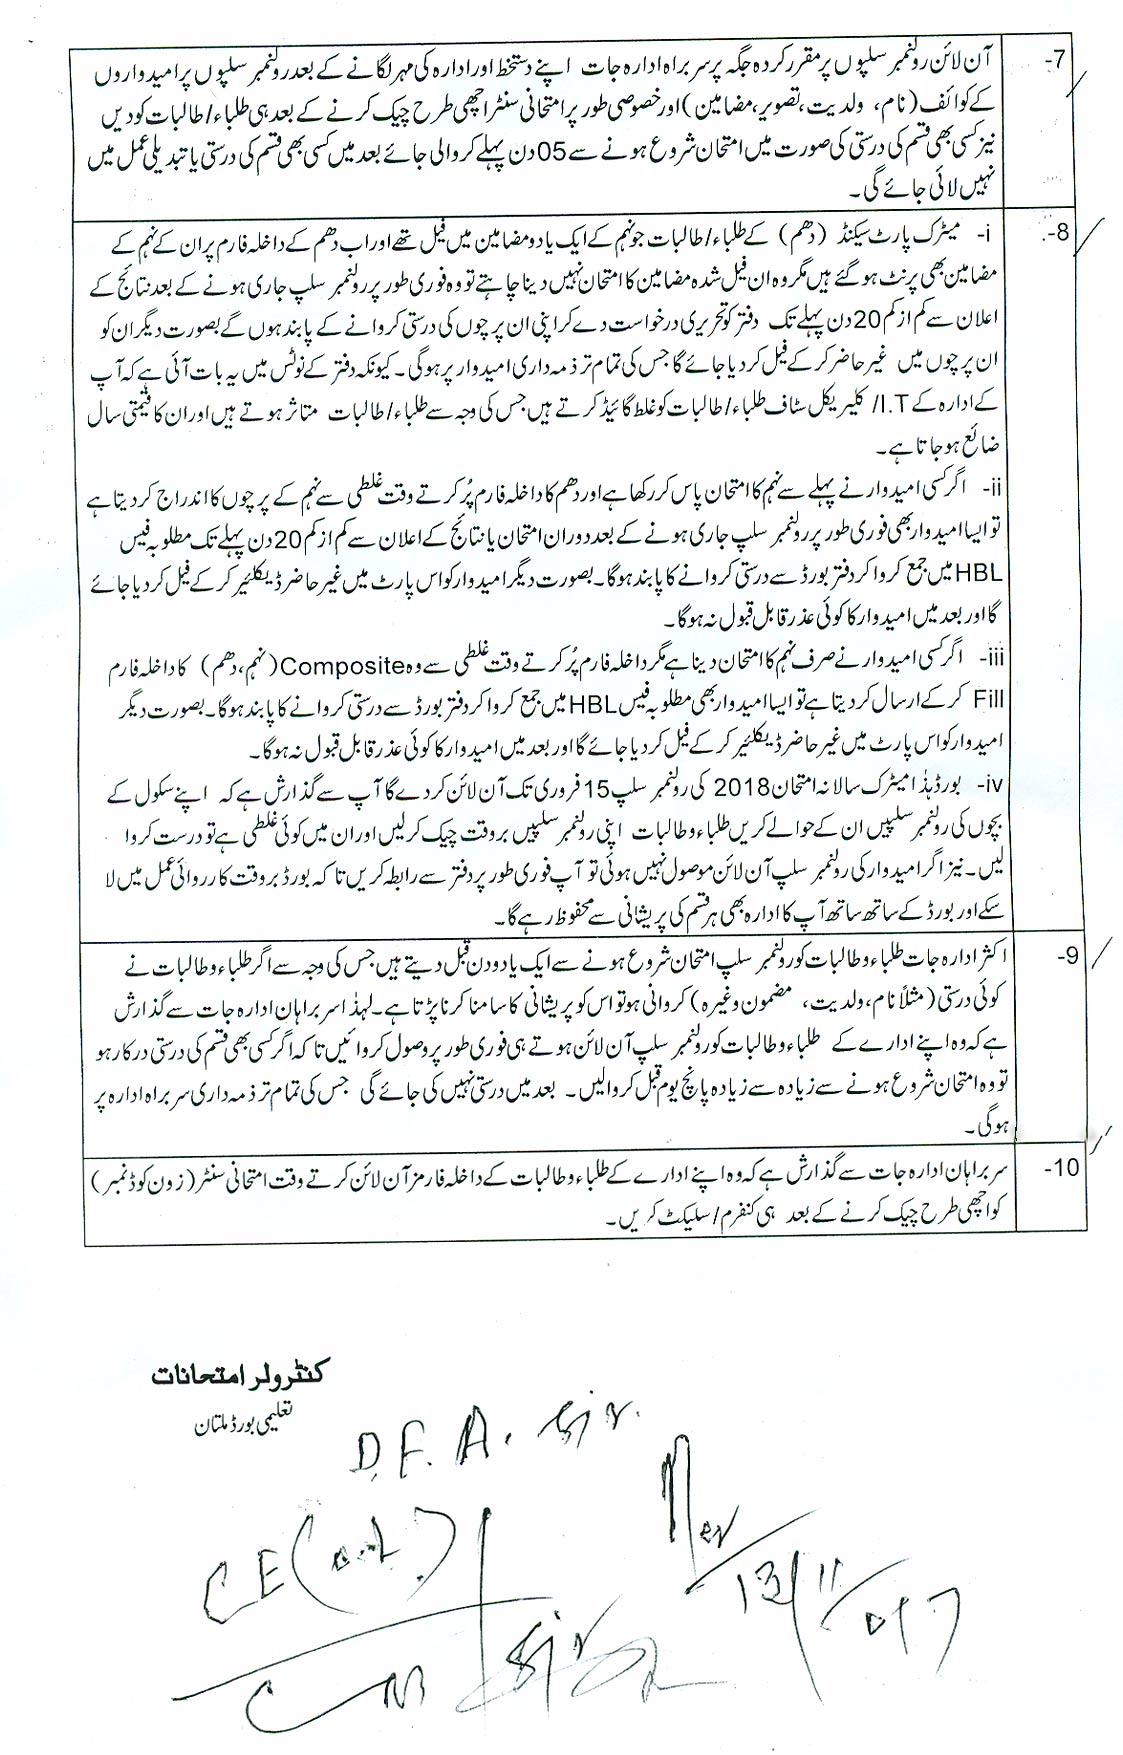 7- آن لائن رولنمبر سلپوں پر مقرر کردہ جگہ پر سربراہ ادارہ جات اپنے دستخط اور ادارہ کی مہر لگانے کے بعد رولنمبر سلپوں پر امیدواروں
کے کوائف (نام، ولدیت، تصویر، مضامین) اور خصوصی طور پر امتحانی سنٹر اچھی طرح چیک کرنے کے بعد ہی طلباء/طالبات کو دیں
نیز کسی بھی قسم کی درستی کی صورت میں امتحان شروع ہونے سے 05 دن پہلے کروالی جائے بعد میں کسی بھی قسم کی درستی یا تبدیلی عمل میں
نہیں لائی جائے گی۔
8- i- میٹرک پارٹ سیکنڈ (دھم) کے طلباء/طالبات جو نہم کے ایک یا دو مضامین میں فیل تھے اور اب دھم کے داخلہ فارم پر ان کے نہم کے
مضامین بھی پرنٹ ہو گئے ہیں مگر وہ ان فیل شدہ مضامین کا امتحان نہیں دینا چاہتے تو وہ فوری طور پر رولنمبر سلپ جاری ہونے کے بعد نتائج کے
اعلان سے کم از کم 20 دن پہلے تک دفتر کو تحریری درخواست دے کر اپنی ان پرچوں کی درستی کروانے کے پابند ہوں گے بصورت دیگر ان کو
ان پرچوں میں غیر حاضر کر کے فیل کر دیا جائے گا جس کی تمام تر ذمہ داری امیدوار پر ہوگی۔ کیونکہ دفتر کے نوٹس میں یہ بات آئی ہے کہ آپ
کے ادارہ کے I.T/ کلیریکل سٹاف طلباء/طالبات کو غلط گائیڈ کرتے ہیں جس کی وجہ سے طلباء/طالبات متاثر ہوتے ہیں اور ان کا قیمتی سال
ضائع ہو جاتا ہے۔
ii- اگر کسی امیدوار نے پہلے سے نہم کا امتحان پاس کر رکھا ہے اور دھم کا داخلہ فارم پُر کرتے وقت غلطی سے نہم کے پرچوں کا اندراج کر دیتا ہے
تو ایسا امیدوار بھی فوری طور پر رولنمبر سلپ جاری ہونے کے بعد دوران امتحان یا نتائج کے اعلان سے کم از کم 20 دن پہلے تک مطلوبہ فیس
HBL میں جمع کروا کر دفتر بورڈ سے درستی کروانے کا پابند ہوگا۔ بصورت دیگر امیدوار کو اس پارٹ میں غیر حاضر ڈیکلئیر کر کے فیل کر دیا جائے
گا اور بعد میں امیدوار کا کوئی عذر قابل قبول نہ ہوگا۔
iii- اگر کسی امیدوار نے صرف نہم کا امتحان دینا ہے مگر داخلہ فارم پُر کرتے وقت غلطی سے وہ Composite (نہم، دھم) کا داخلہ فارم
Fill کر کے ارسال کر دیتا ہے تو ایسا امیدوار بھی مطلوبہ فیس HBL میں جمع کروا کر دفتر بورڈ سے درستی کروانے کا پابند ہوگا۔ بصورت دیگر
امیدوار کو اس پارٹ میں غیر حاضر ڈیکلئیر کر کے فیل کر دیا جائے گا اور بعد میں امیدوار کا کوئی عذر قابل قبول نہ ہوگا۔
iv- بورڈ ہذٰا میٹرک سالانہ امتحان 2018 کی رولنمبر سلپ 15 فروری تک آن لائن کر دے گا آپ سے گذارش ہے کہ اپنے سکول کے
بچوں کی رولنمبر سلپیں ان کے حوالے کریں طلباء و طالبات اپنی رولنمبر سلپیں بروقت چیک کر لیں اور ان میں کوئی غلطی ہے تو درست کروا
لیں۔ نیز اگر امیدوار کی رولنمبر سلپ آن لائن موصول نہیں ہوئی تو آپ فوری طور پر دفتر سے رابطہ کریں تا کہ بورڈ بروقت کارروائی عمل میں لا
سکے اور بورڈ کے ساتھ ساتھ آپ کا ادارہ بھی ہر قسم کی پریشانی سے محفوظ رہے گا۔
9- اکثر ادارہ جات طلباء و طالبات کو رولنمبر سلپ امتحان شروع ہونے سے ایک یا دو دن قبل دیتے ہیں جس کی وجہ سے اگر طلباء و طالبات نے
کوئی درستی (مثلاً نام، ولدیت، مضمون وغیرہ) کروانی ہو تو اس کو پریشانی کا سامنا کرنا پڑتا ہے۔ لہذٰا سربراہان ادارہ جات سے گذارش
ہے کہ وہ اپنے ادارے کے طلباء و طالبات کو رولنمبر سلپ آن لائن ہوتے ہی فوری طور پر وصول کروائیں تا کہ اگر کسی بھی قسم کی درستی درکار ہو
تو وہ امتحان شروع ہونے سے زیادہ سے زیادہ پانچ یوم قبل کروالیں۔ بعد میں درستی نہیں کی جائے گی جس کی تمام تر ذمہ داری سربراہ ادارہ پر
ہوگی۔
10- سربراہان ادارہ جات سے گذارش ہے کہ وہ اپنے ادارے کے طلباء و طالبات کے داخلہ فارمز آن لائن کرتے وقت امتحانی سنٹر (زون کوڈ نمبر)
کو اچھی طرح چیک کرنے کے بعد ہی کنفرم/سلیکٹ کریں۔
کنٹرولر امتحانات
تعلیمی بورڈ ملتان
D.F.A. Sir.
CE
Sir
13/11/017